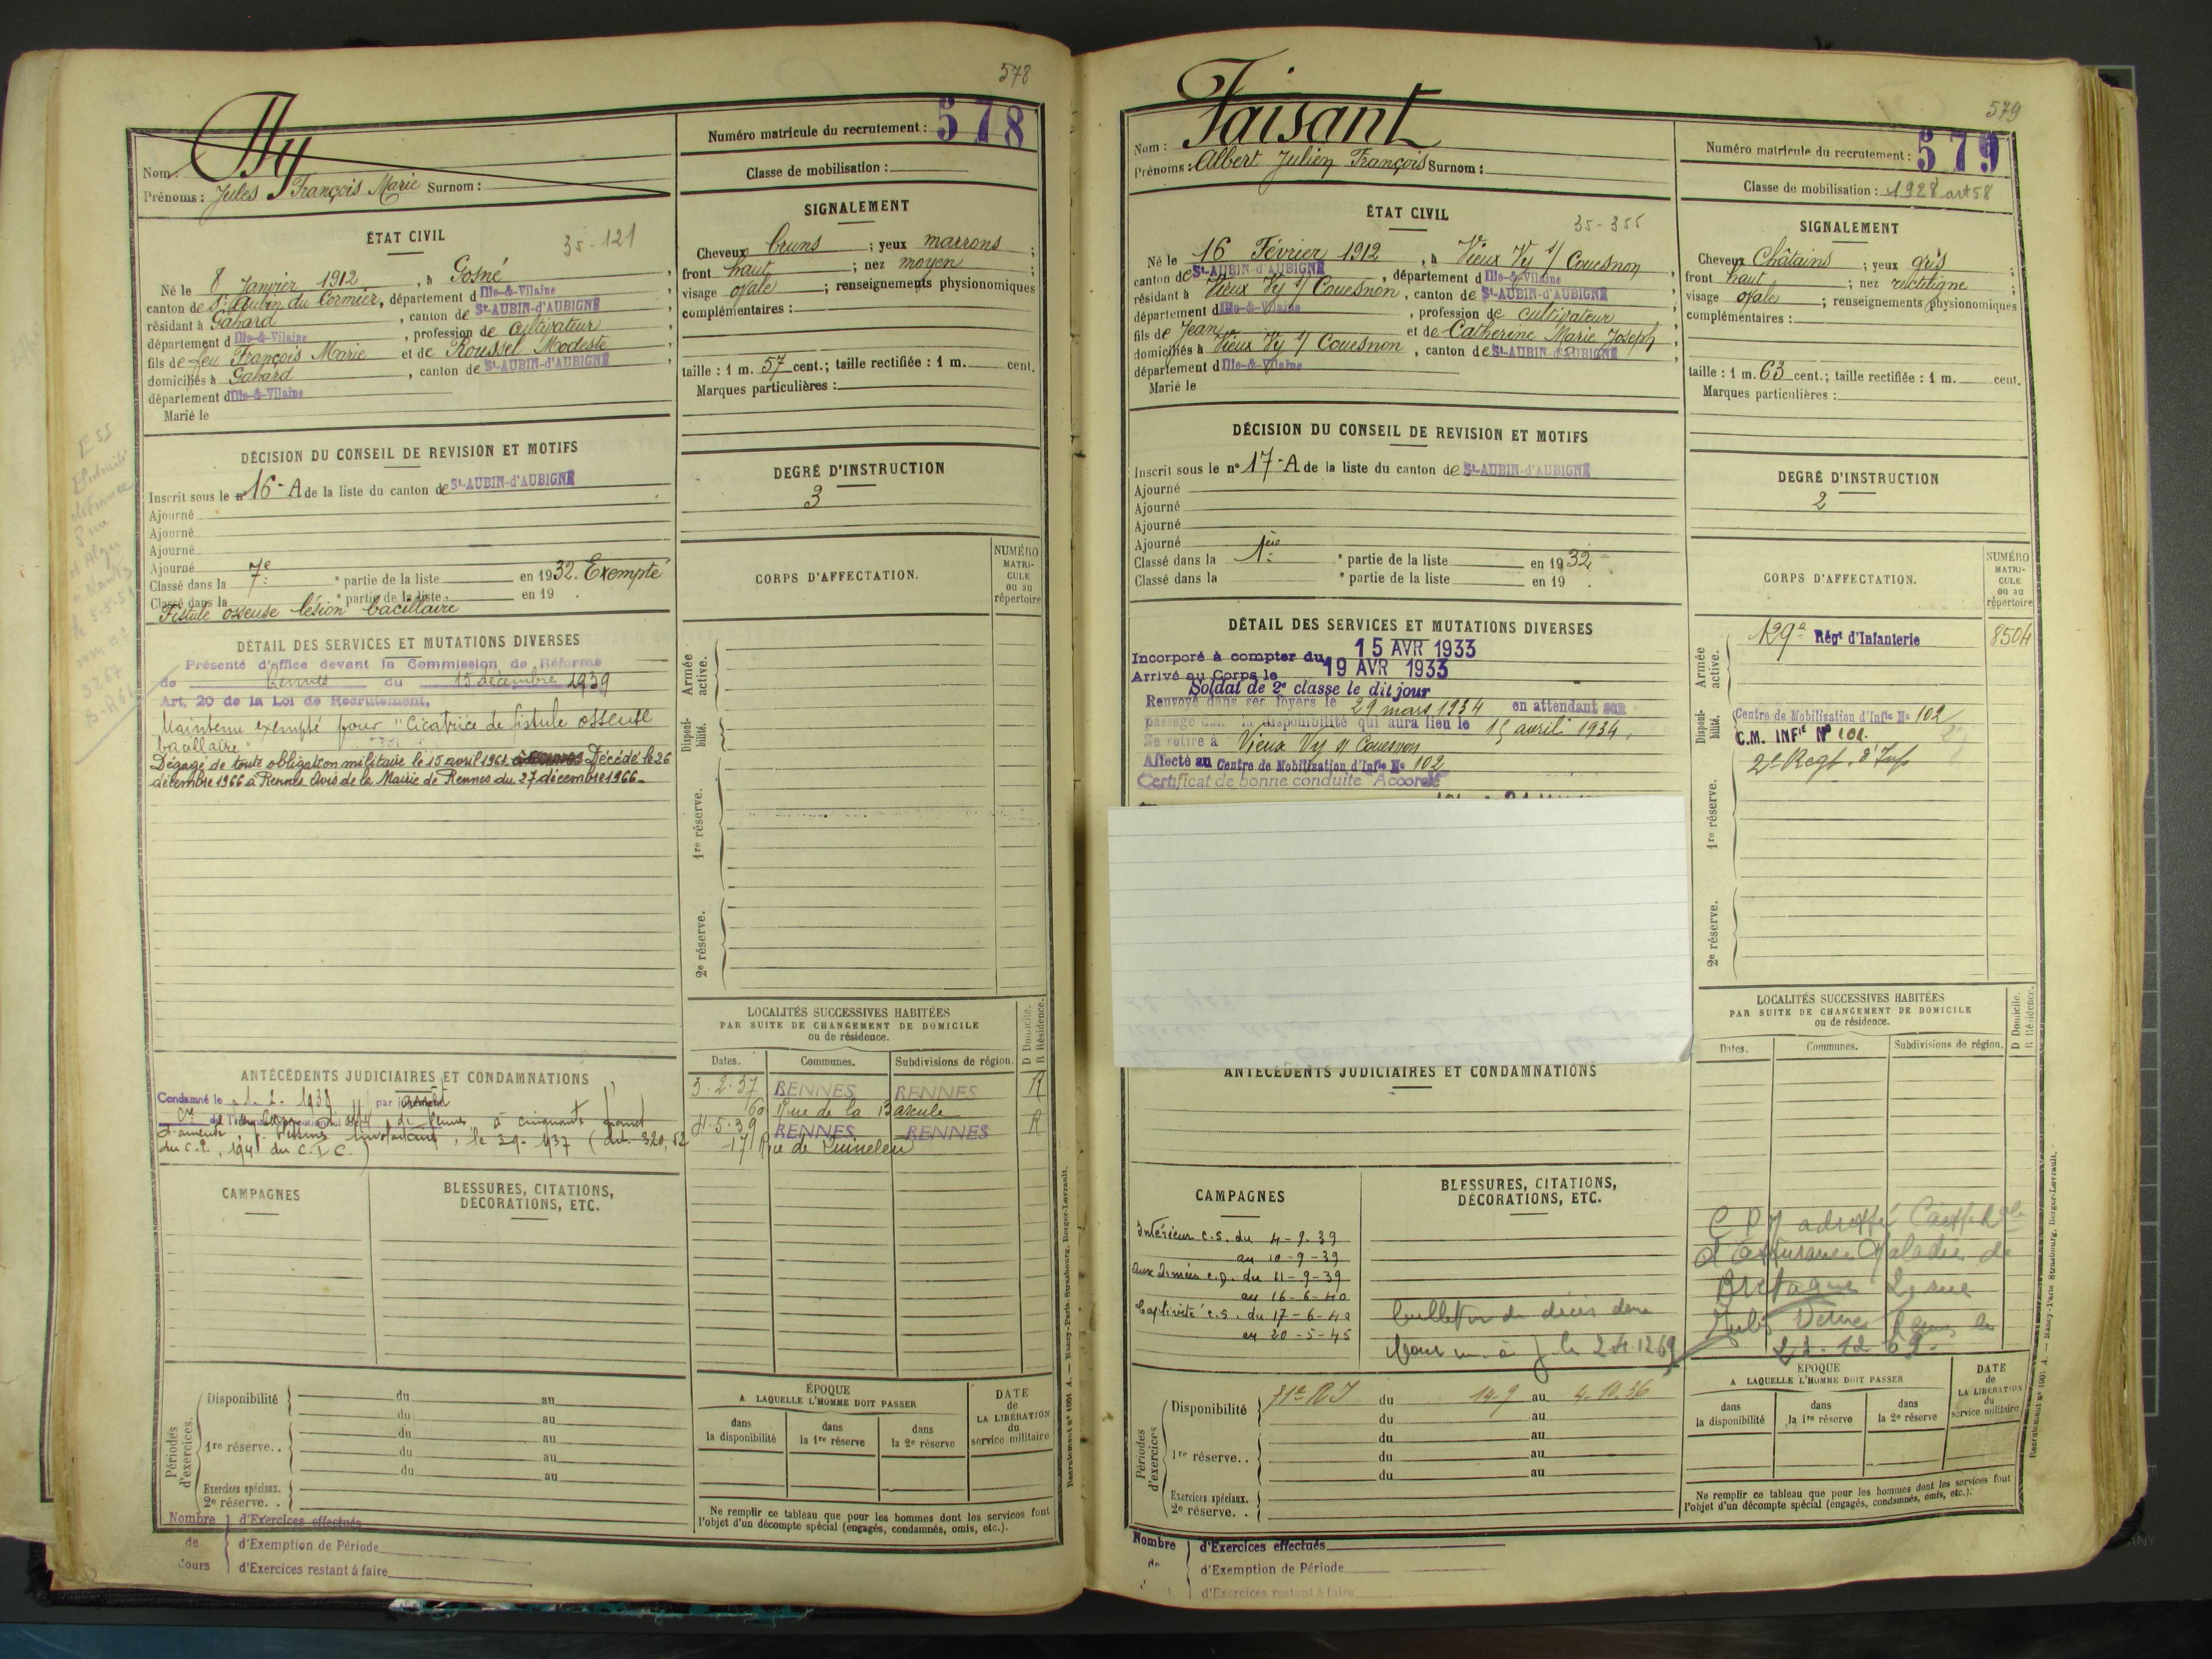 578
Nom : Hy
Prénoms : Jules François Marie Surnom :
Numéro matricule du recrutement : 578
Classe de mobilisation :
ÉTAT CIVIL
35-121
Né le 8 Janvier 1912, à Gosné,
canton de St Aubin du Cormier, département d Ille-&-Vilaine,
résidant à Gahard, canton de St-AUBIN-d'AUBIGNÉ,
département d Ille-&-Vilaine, profession de cultivateur,
fils de feu François Marie et de Roussel Modeste,
domiciliés à Gahard, canton de St-AUBIN-d'AUBIGNÉ,
département d Ille-&-Vilaine
Marié le
SIGNALEMENT
Cheveux bruns ; yeux marrons ;
front haut ; nez moyen ;
visage ovale ; renseignements physionomiques
complémentaires :
taille : 1 m. 57 cent.; taille rectifiée : 1 m. cent.
Marques particulières :
DÉCISION DU CONSEIL DE REVISION ET MOTIFS
Inscrit sous le n° 16-A de la liste du canton de St-AUBIN-d'AUBIGNÉ
Ajourné
Ajourné
Ajourné
Ajourné
Classé dans la 7e ° partie de la liste en 1932. Exempté
Classé dans la ° partie de la liste en 19 .
Fistule osseuse lésion bacillaire
DEGRÉ D'INSTRUCTION
3
DÉTAIL DES SERVICES ET MUTATIONS DIVERSES
Présenté d'office devant la Commission de Réforme
de Rennes du 15 décembre 1939
Art. 20 de la Loi de Recrutement.
Maintenu exempté pour "Cicatrice de fistule osseuse
bacillaire"
Dégagé de toute obligation militaire le 15 avril 1961. Décédé le 26
décembre 1966 à Rennes Avis de la Mairie de Rennes du 27 décembre 1966.
CORPS D'AFFECTATION.
NUMÉRO MATRICULE ou au répertoire
Armée active.
Disponibilité.
1re réserve.
2e réserve.
LOCALITÉS SUCCESSIVES HABITÉES
PAR SUITE DE CHANGEMENT DE DOMICILE
ou de résidence.
D Domicile.
R Résidence.
Dates. Communes. Subdivisions de région.
3.2.37 RENNES RENNES R
60 Rue de la Bascule
4.5.39 RENNES RENNES R
17 Rue de Quineleu
ANTÉCÉDENTS JUDICIAIRES ET CONDAMNATIONS
Condamné le 1.2.1938 par
de Rennes à cinquante
d'amende
du C.P., 194 du C.I.C.)
CAMPAGNES
BLESSURES, CITATIONS,
DÉCORATIONS, ETC.
Périodes d'exercices.
Disponibilité du au
du au
1re réserve.. du au
du au
du au
Exercices spéciaux.
2e réserve..
ÉPOQUE
A LAQUELLE L'HOMME DOIT PASSER
dans la disponibilité
dans la 1re réserve
dans la 2e réserve
DATE de LA LIBÉRATION du service militaire
Ne remplir ce tableau que pour les hommes dont les services font
l'objet d'un décompte spécial (engagés, condamnés, omis, etc.).
Nombre de jours
d'Exercices effectués
d'Exemption de Période
d'Exercices restant à faire
Recrutement n° 1001 A. — Nancy-Paris-Strasbourg, Berger-Levrault.
579
Nom : Faisant
Prénoms : Albert Julien François Surnom :
Numéro matricule du recrutement : 579
Classe de mobilisation : 1928 art 58
ÉTAT CIVIL
35-355
Né le 16 Février 1912, à Vieux Vy s/ Couesnon,
canton de St-AUBIN-d'AUBIGNÉ, département d Ille-&-Vilaine,
résidant à Vieux Vy s/ Couesnon, canton de St-AUBIN-d'AUBIGNÉ,
département d Ille-&-Vilaine, profession de cultivateur,
fils de Jean et de Catherine Marie Joseph,
domiciliés à Vieux Vy s/ Couesnon, canton de St-AUBIN-d'AUBIGNÉ,
département d Ille-&-Vilaine
Marié le
SIGNALEMENT
Cheveux Châtains ; yeux gris ;
front haut ; nez rectiligne ;
visage ovale ; renseignements physionomiques
complémentaires :
taille : 1 m. 63 cent.; taille rectifiée : 1 m. cent.
Marques particulières :
DÉCISION DU CONSEIL DE REVISION ET MOTIFS
Inscrit sous le n° 17-A de la liste du canton de St-AUBIN-d'AUBIGNÉ
Ajourné
Ajourné
Ajourné
Ajourné
Classé dans la 1ère ° partie de la liste en 1932.
Classé dans la ° partie de la liste en 19 .
DEGRÉ D'INSTRUCTION
2
DÉTAIL DES SERVICES ET MUTATIONS DIVERSES
Incorporé à compter du 15 AVR 1933
Arrivé au Corps le 19 AVR 1933
Soldat de 2e classe le dit jour
Renvoyé dans ses foyers le 29 mars 1934 en attendant son
passage dans la disponibilité qui aura lieu le 15 avril 1934,
Se retire à Vieux Vy s/ Couesnon
Affecté au Centre de Mobilisation d'Infie N° 102
Certificat de bonne conduite Accordé
CORPS D'AFFECTATION.
NUMÉRO MATRICULE ou au répertoire
Armée active.
129e Régt d'Infanterie 8504
Disponibilité.
Centre de Mobilisation d'Infie N° 102
C.M. INFIE N° 101.
2e Regt d'Inf
1re réserve.
2e réserve.
LOCALITÉS SUCCESSIVES HABITÉES
PAR SUITE DE CHANGEMENT DE DOMICILE
ou de résidence.
D Domicile.
R Résidence.
Dates. Communes. Subdivisions de région.
ANTÉCÉDENTS JUDICIAIRES ET CONDAMNATIONS
CAMPAGNES
Intérieur c.s. du 4-9-39
au 10-9-39
Aux Armées c.d. du 11-9-39
au 16-6-40
Captivité c.s. du 17-6-40
au 20-5-45
BLESSURES, CITATIONS,
DÉCORATIONS, ETC.
bulletin de décès
le 24.12.69
adressé Caisse
d'Assurance Maladie de
Bretagne 2, rue
Jules Verne Rennes le
12 69
Périodes d'exercices
Disponibilité 71e RI du 14.9 au 4.10.36
du au
du au
1re réserve.. du au
du au
Exercices spéciaux.
2e réserve..
ÉPOQUE
A LAQUELLE L'HOMME DOIT PASSER
dans la disponibilité
dans la 1re réserve
dans la 2e réserve
DATE de LA LIBÉRATION du service militaire
Ne remplir ce tableau que pour les hommes dont les services font
l'objet d'un décompte spécial (engagés, condamnés, omis, etc.).
Nombre de
d'Exercices effectués
d'Exemption de Période
d'Exercices restant à faire
Recrutement n° 1001 A. — Nancy-Paris-Strasbourg, Berger-Levrault.